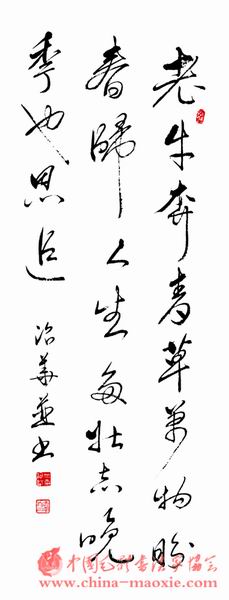 老牛奔青草万物盼
春归人生多壮志晚
季也思追
冶华并书
中国毛体书法家协会
www.china-maoxie.com